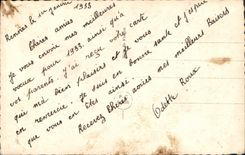 Rennes le 1er janvier 1933
Chères amies
Je vous envoie mes meilleures
voeux pour 1933. ainsi qu'à
vos parents. J'ai reçu votre carte
qui m'a bien plaisirs et je vous
en remercie. Je suis en bonne santé et j'espère
que vous en êtes ainsi.
Recevez chères amies mes meilleurs Baisers
Odette Roux